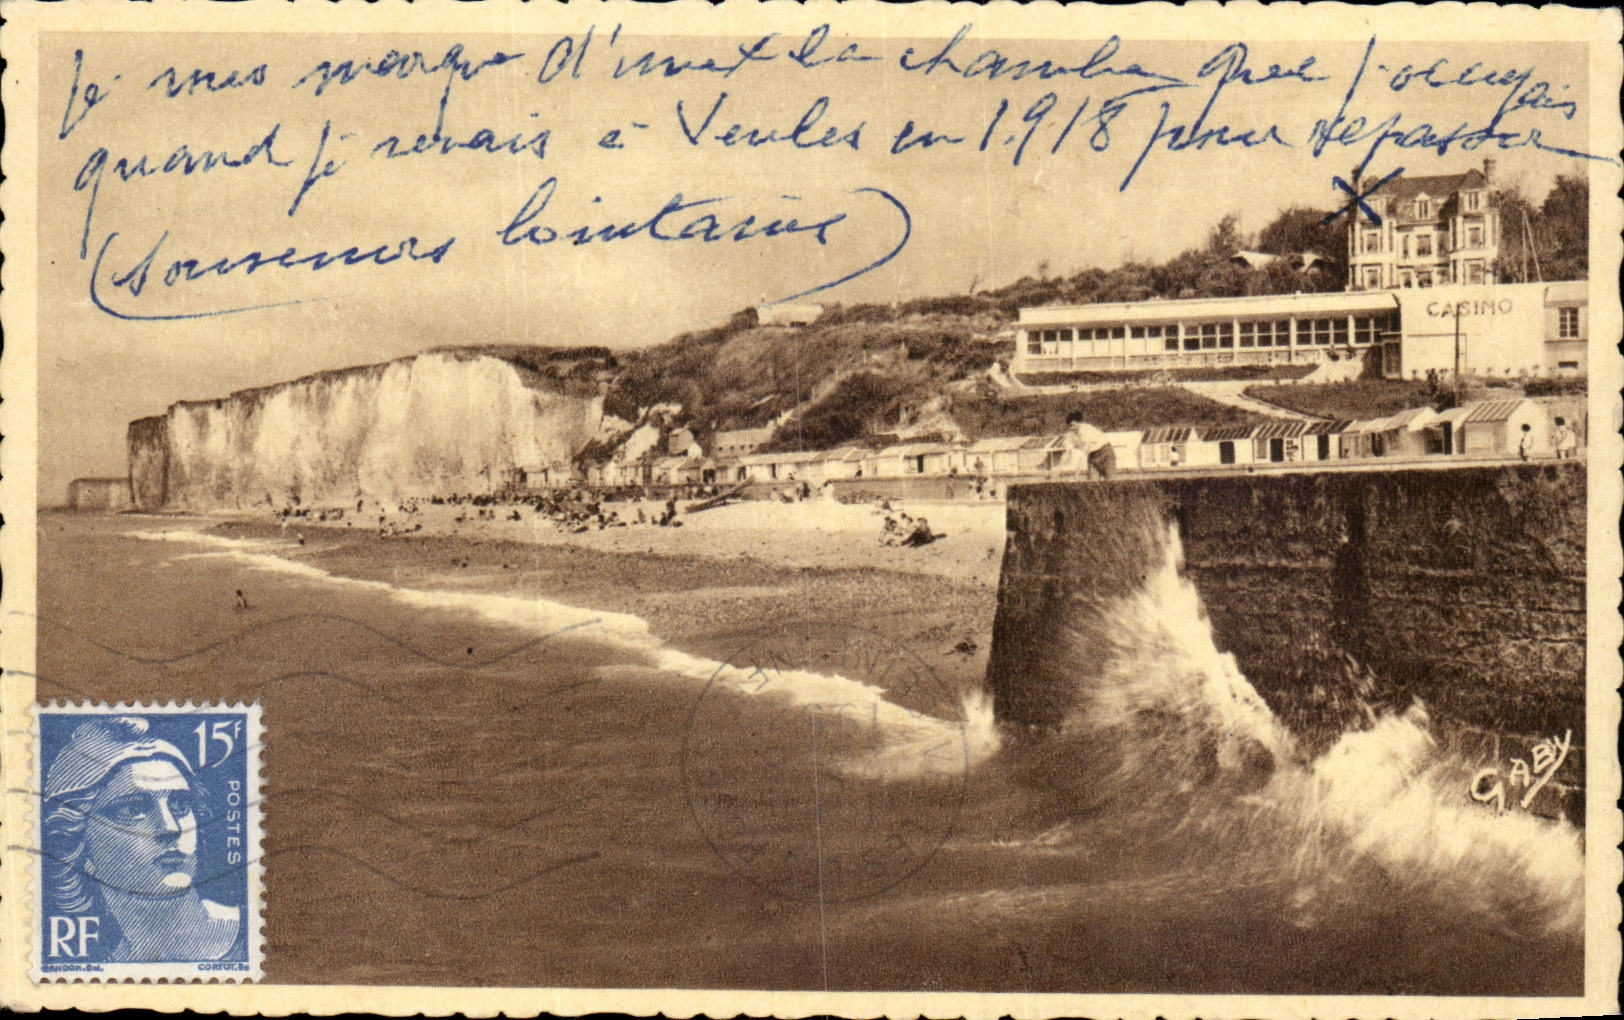 Je vous marque d'une x la chambre que j'occupais
quand je venais à Veules en 1918 pour me reposer
(Souvenirs lointains)
CASINO
GABY
15F
POSTES
RF
GANDON.Del.
CORTOT.Sc